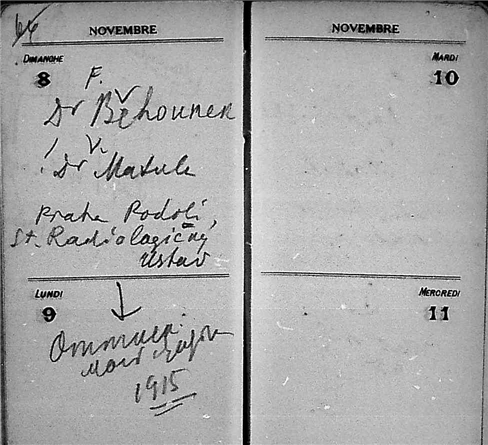 66
NOVEMBRE
DIMANCHE
8
F.
Dr Běhounek
V.
! Dr Matula
Praha Podolí,
St. Radiologičný
Ustav
LUNDI
9
1915
NOVEMBRE
MARDI
10
MERCREDI
11